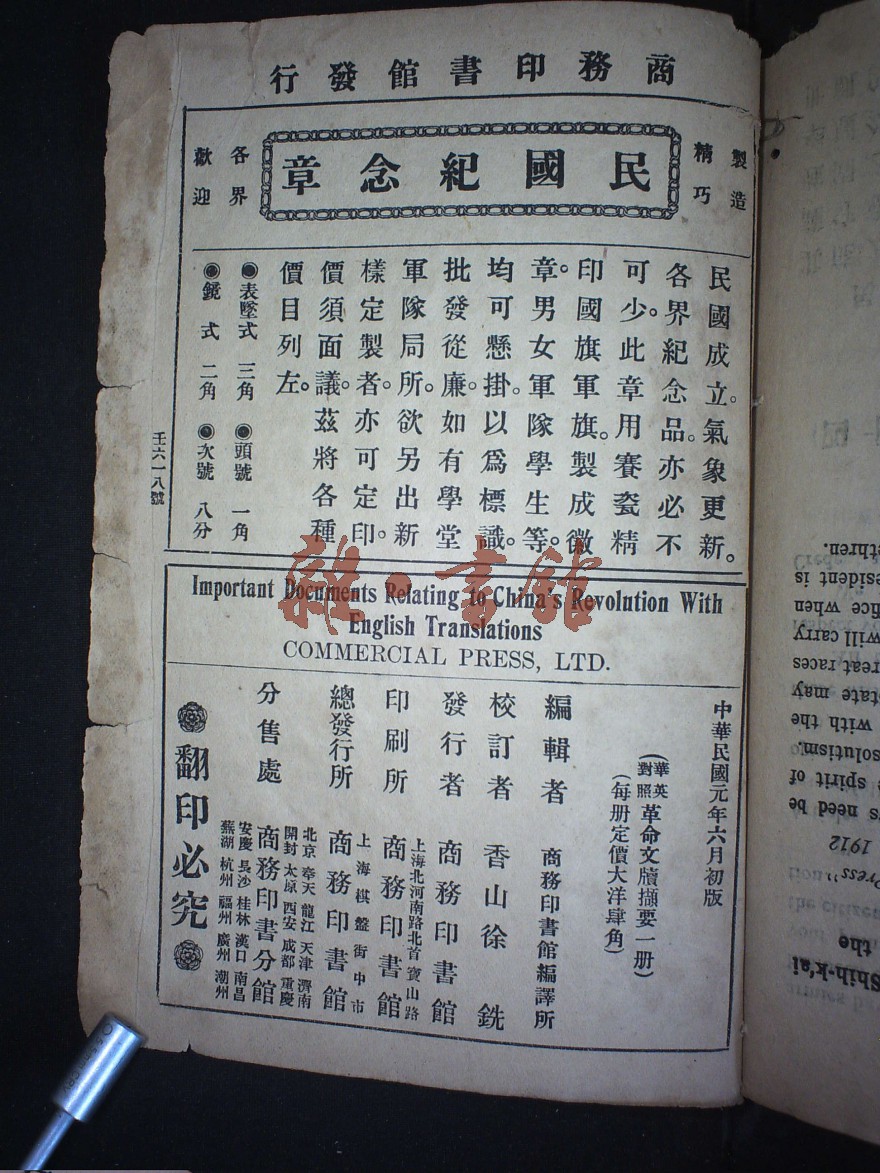 商務印書館發行
製造
精巧
民國紀念章
各界
歡迎
民國成立。氣象更新。
各界紀念品。亦必不
可少。此章用賽瓷精
印國旗軍旗。製成徽
章。男女軍隊學生等。
均可懸掛。以爲標識。
批發從廉。如有學堂
軍隊局所。欲另出新
樣定製者。亦可定印。
價須面議。茲將各種
價目列左。
◉表墜式 三角 ◉頭號 一角
◉鏡式 二角 ◉次號 八分
壬六一八號
Important Documents Relating to China's Revolution With
English Translations
COMMERCIAL PRESS, LTD.
中華民國元年六月初版
(華英對照革命文牘擷要一册)
(每册定價大洋肆角)
編輯者 商務印書館編譯所
校訂者 香山徐銑
發行者 商務印書館
上海北河南路北首寶山路
印刷所 商務印書館
上海棋盤街中市
總發行所 商務印書館
北京 奉天 龍江 天津 濟南
開封 太原 西安 成都 重慶
分售處 商務印書分館
安慶 長沙 桂林 漢口 南昌
蕪湖 杭州 福州 廣州 潮州
翻印必究
雜·書館
Shih-k'ai
the
Press"
1912
need be
spirit of
solutism.
with the
state may
reat races
will carry
fice when
resident is
ethren.